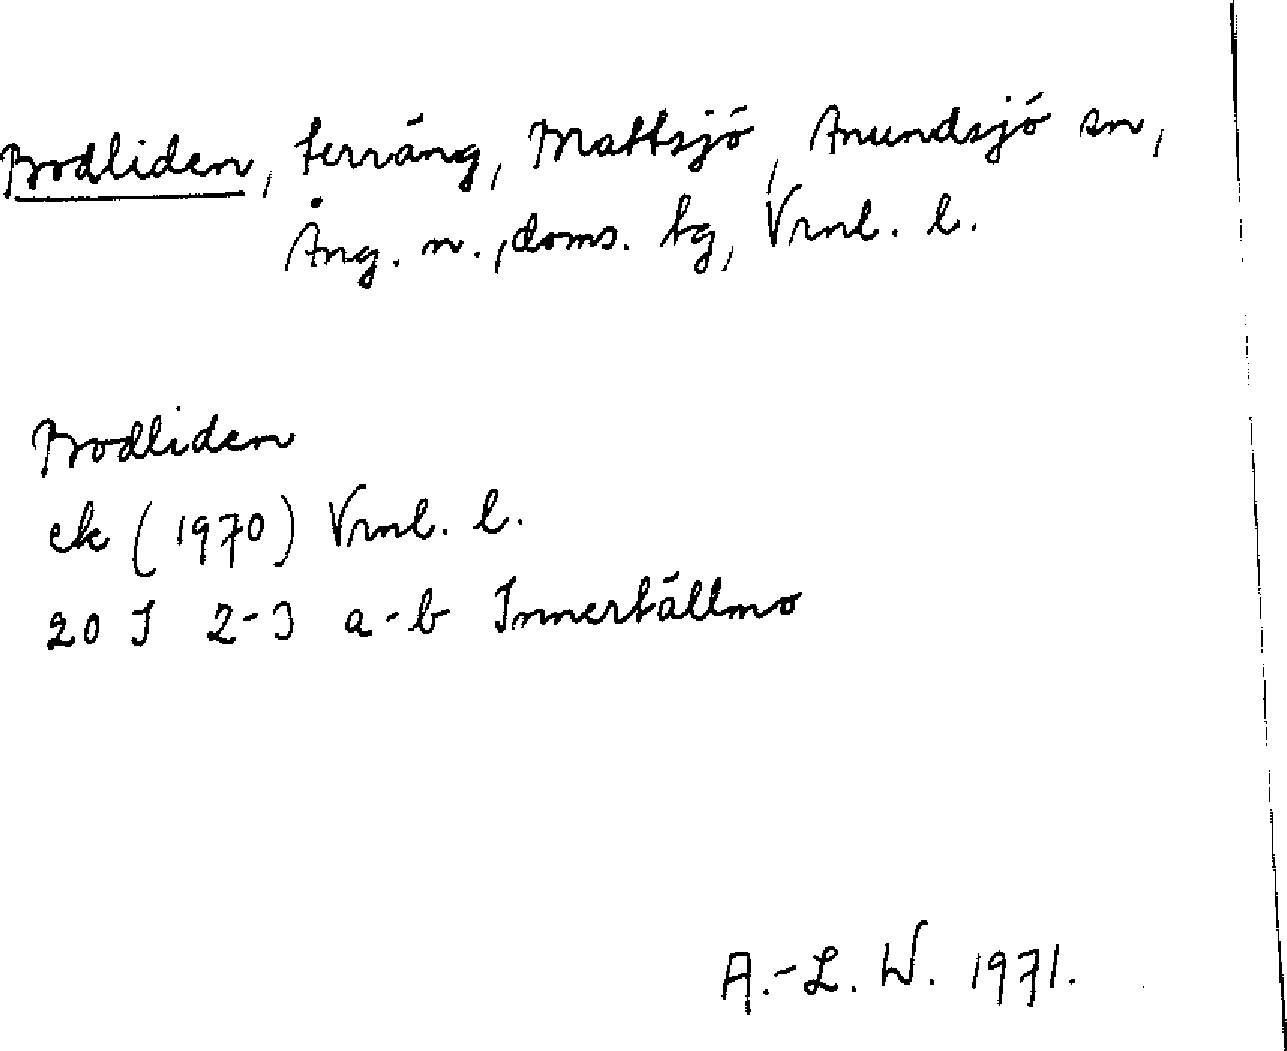 Bodliden, terräng, Mattsjö, Anundsjö sn,
Ång. n., doms. tg, Vrnl. l.
Bodliden
ek (1970) Vrnl. l.
20 I 2-3 a-b Innertällmo
A.-L. W. 1971.